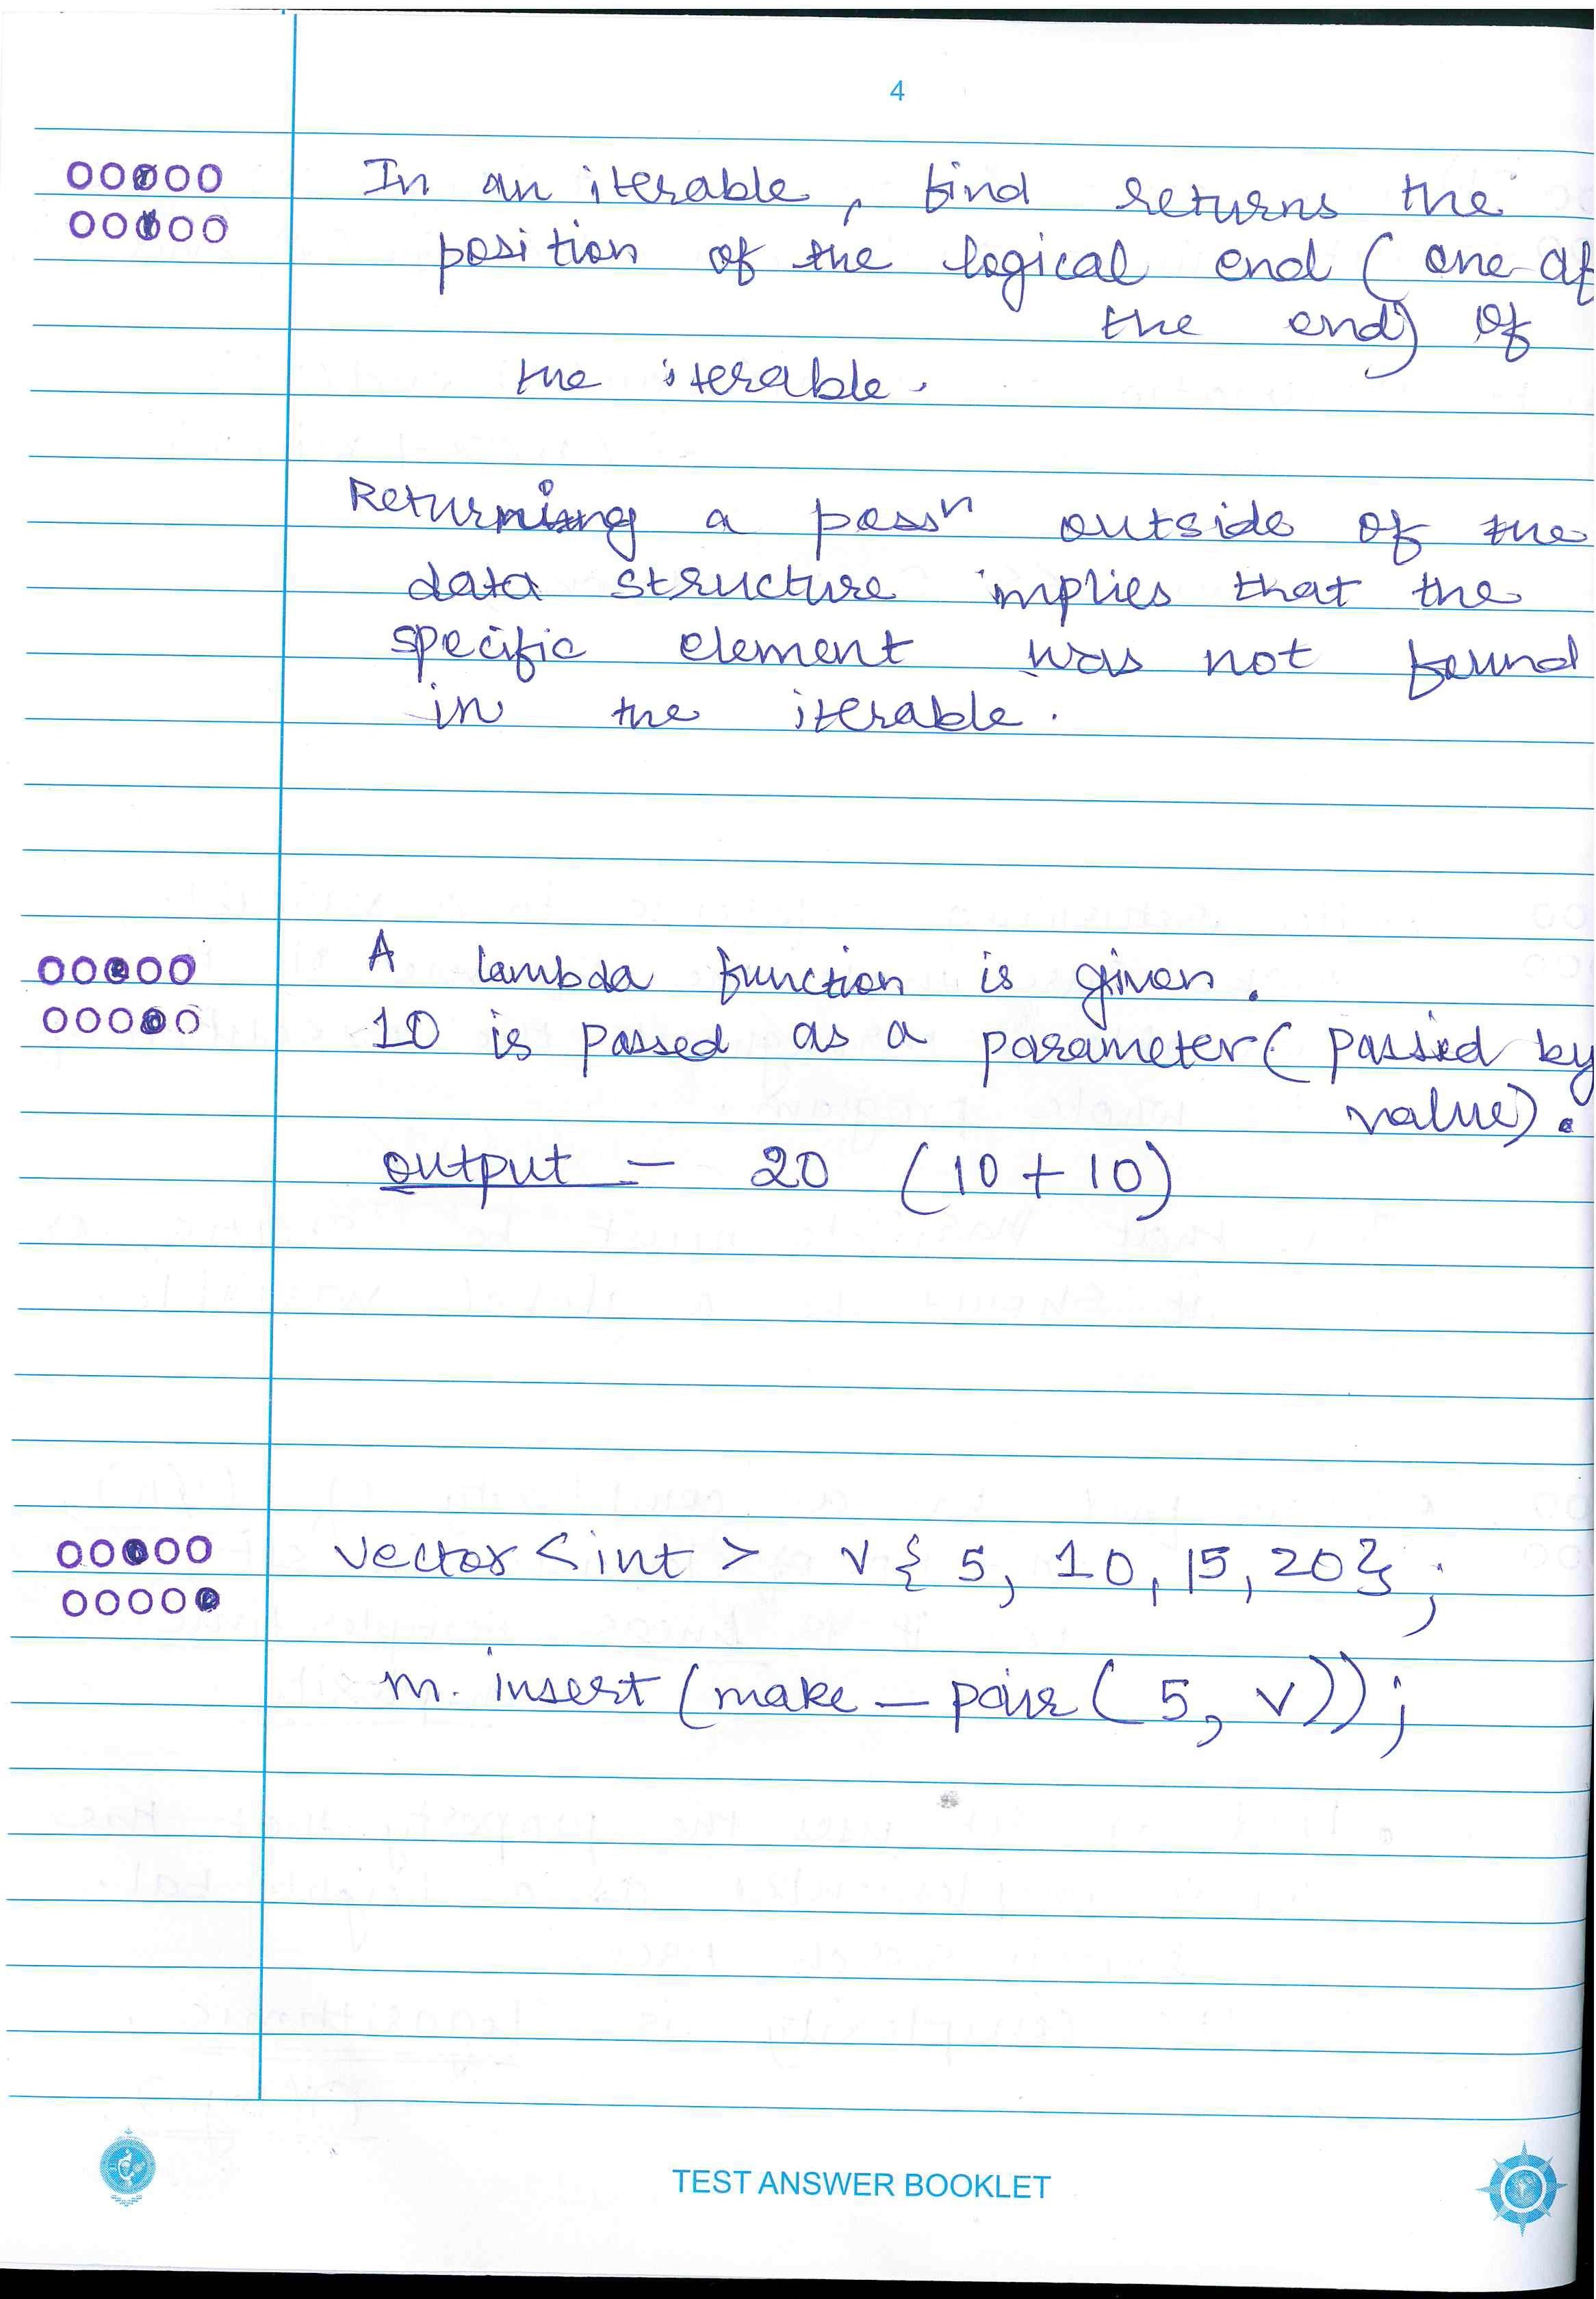 4
In an iterable, find returns the
position of the logical end (one af
the end) of
the iterable.
Returning a possn outside of the
data structure implies that the
specific element was not found
in the iterable.
A lambda function is given.
10 is passed as a parameter (passed by
value).
output - 20 (10 + 10)
vector <int> v{5, 10, 15, 20};
m. insert (make_pair (5, v));
TEST ANSWER BOOKLET